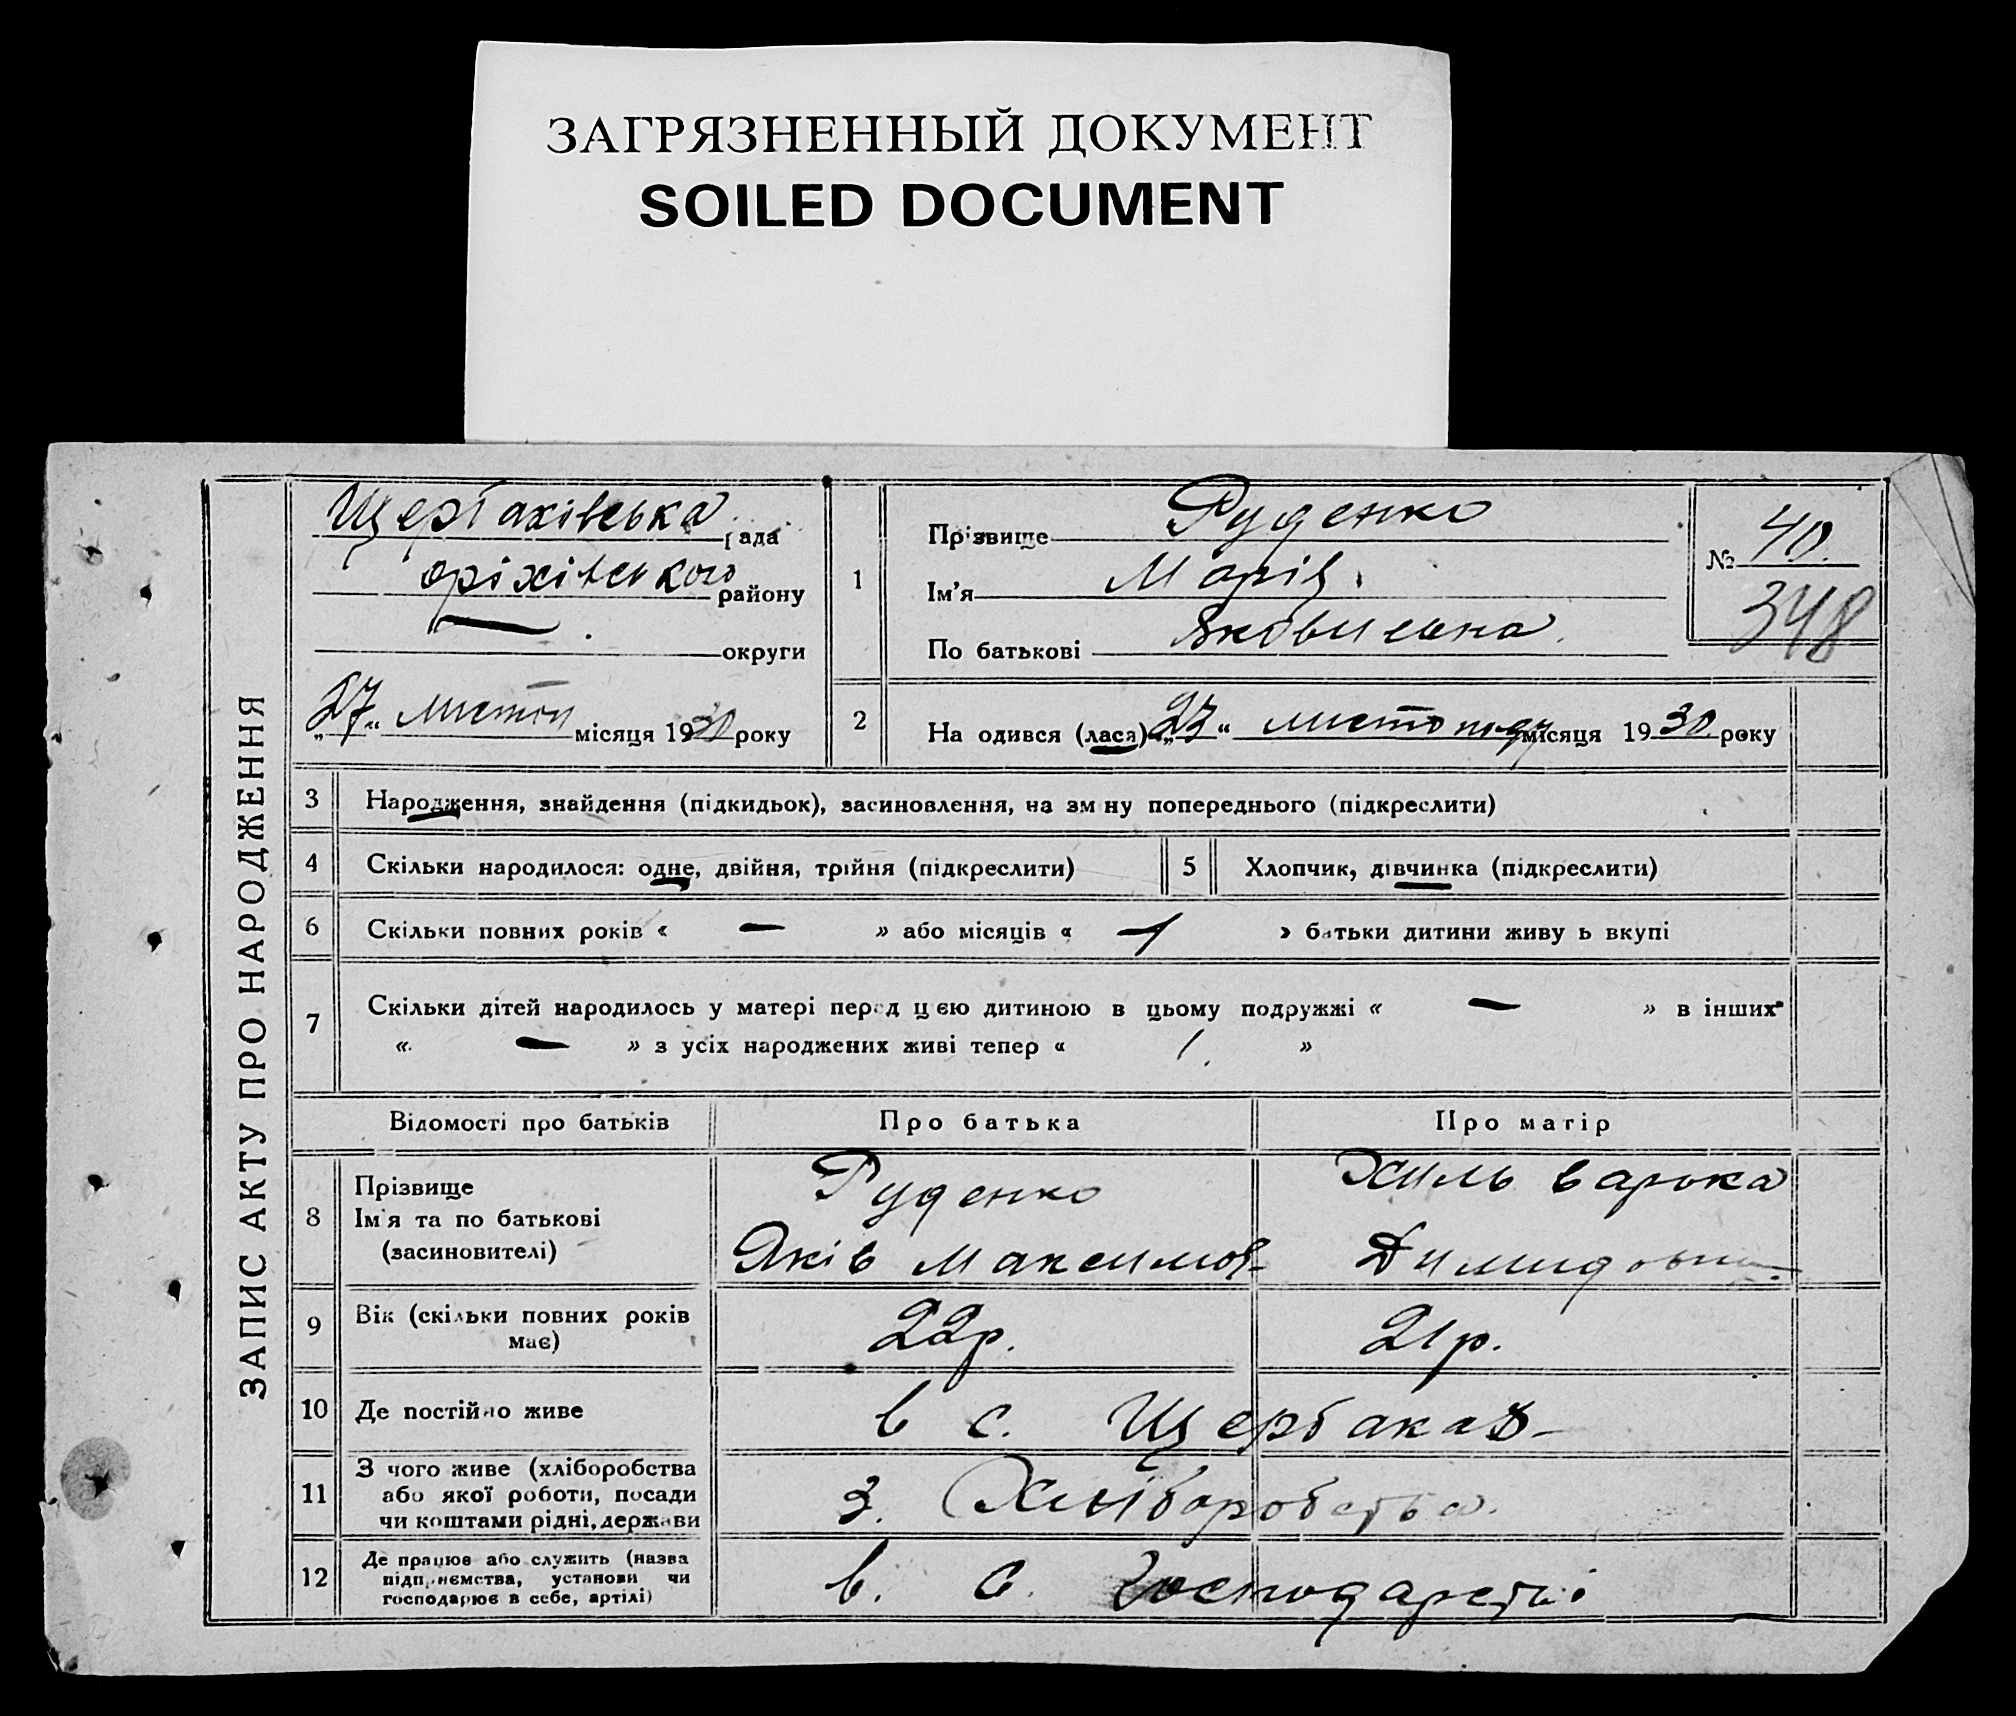 ЗАГРЯЗНЕННЫЙ ДОКУМЕНТ
SOILED DOCUMENT
ЗАПИС АКТУ ПРО НАРОДЖЕННЯ
Щербаківська рада
оріхівського району
— округи
„27“ листоп місяця 1930 року
1
Прізвище Руденко
Ім'я Марія
По батькові Яковлевна
№ 40.
348
2 На одився (лася) „23“ листопаду місяця 1930 року
3 Народження, знайдення (підкидьок), засиновлення, на зм ну попереднього (підкреслити)
4 Скільки народилося: одне, двійня, трійня (підкреслити)
5 Хлопчик, дівчинка (підкреслити)
6 Скільки повних років « — » або місяців « 1 » батьки дитини живу ь вкупі
7 Скільки дітей народилось у матері перед цією дитиною в цьому подружжі « — » в інших
« — » з усіх народжених живі тепер « 1. »
Відомості про батьків Про батька Про матір
8 Прізвище
Ім'я та по батькові
(засиновителі)
Руденко
Яків Максимов
Варька
9 Вік (скільки повних років
має)
22р. 21р.
10 Де постійно живе в с. Щербаках
11 З чого живе (хліборобства
або якої роботи, посади
чи коштами рідні, держави
з. Хліборобства.
12 Де працює або служить (назва
підприємства, установи чи
господарює в себе, артілі)
в. с. господарстві